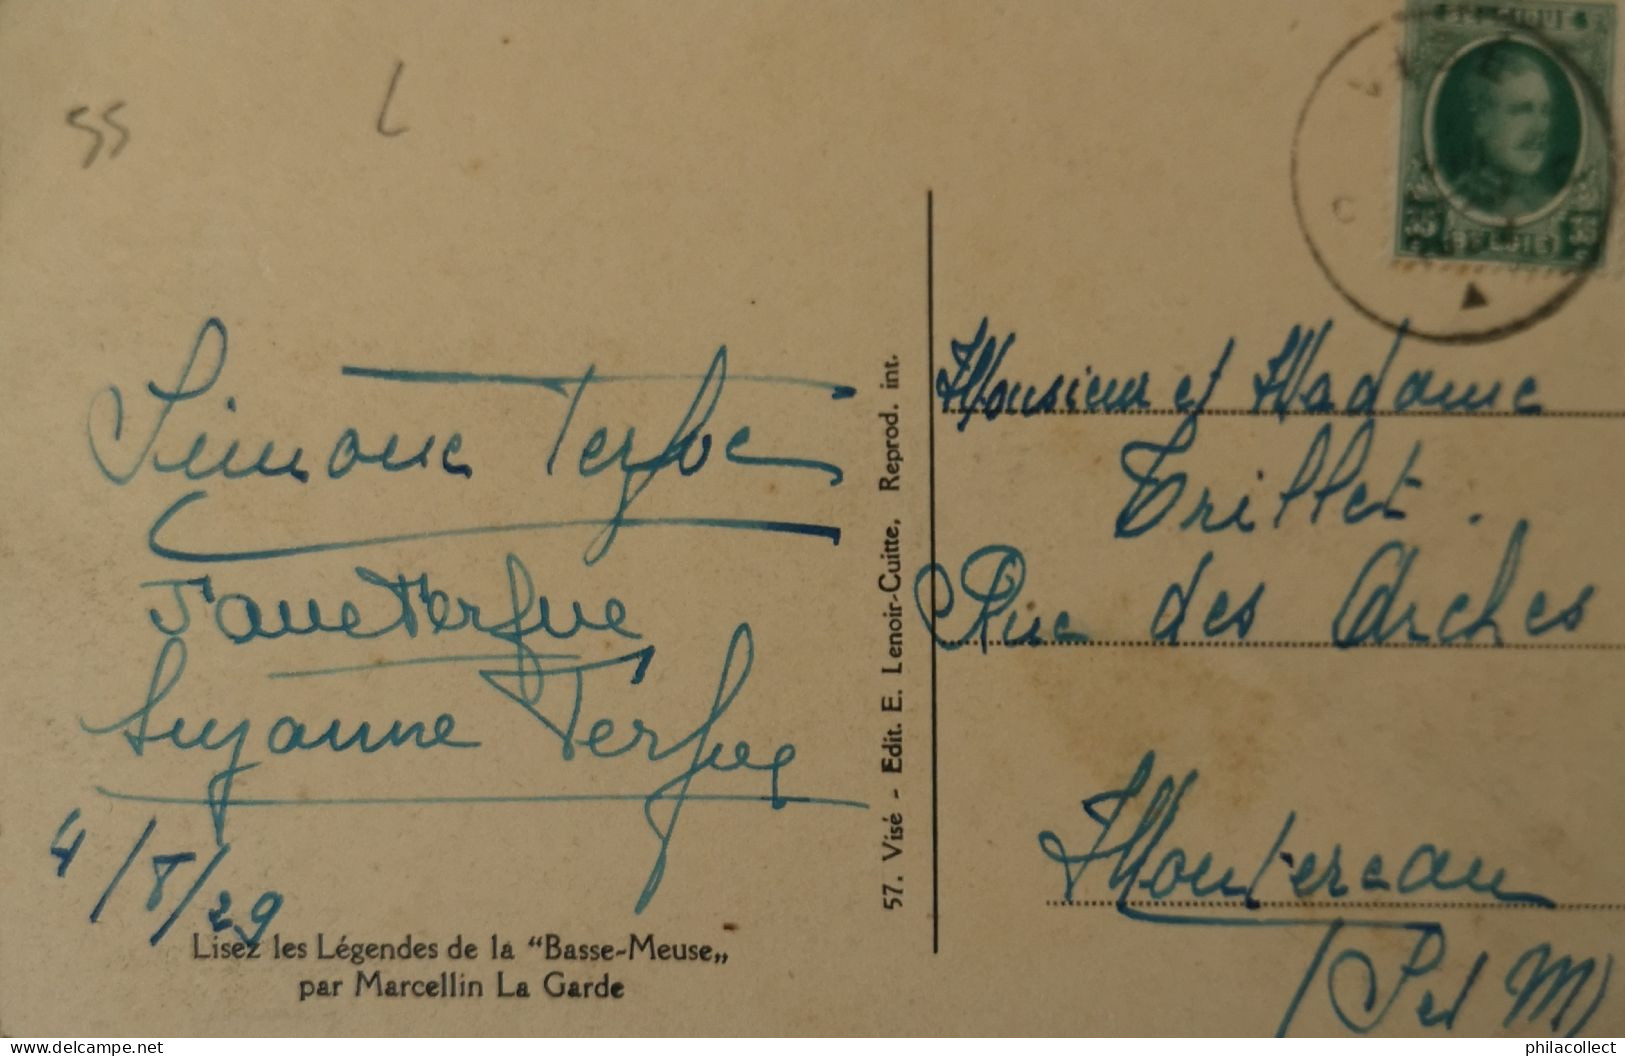 55 L
BELGIQUE
35 BELGIË 35
Simone Terfve
Jane Terfve
Suzanne Terfve
4/8/29
Lisez les Légendes de la “Basse-Meuse„
par Marcellin La Garde
57. Visé - Edit. E. Lenoir-Cuitte, Reprod. int.
Monsieur et Madame
Trillet.
Rue des Arches
Montereau
(S et M)
philacollect